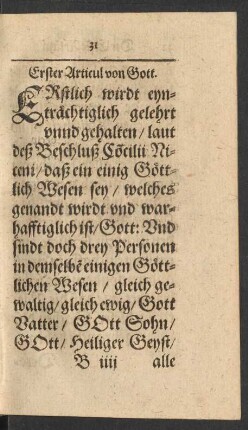 31
Erster Articul von Gott.
ERstlich wirdt eyn-
trächtiglich gelehrt
vnnd gehalten / laut
deß Beschluß Cõcilii Ni-
ceni / daß ein einig Gött-
lich Wesen sey / welches
genandt wirdt vnd war-
hafftiglich ist / Gott: Vnd
sindt doch drey Personen
in demselbẽ einigen Gött-
lichen Wesen / gleich ge-
waltig / gleich ewig / Gott
Vatter / GOtt Sohn /
GOtt / Heiliger Geyst /
B iiij alle